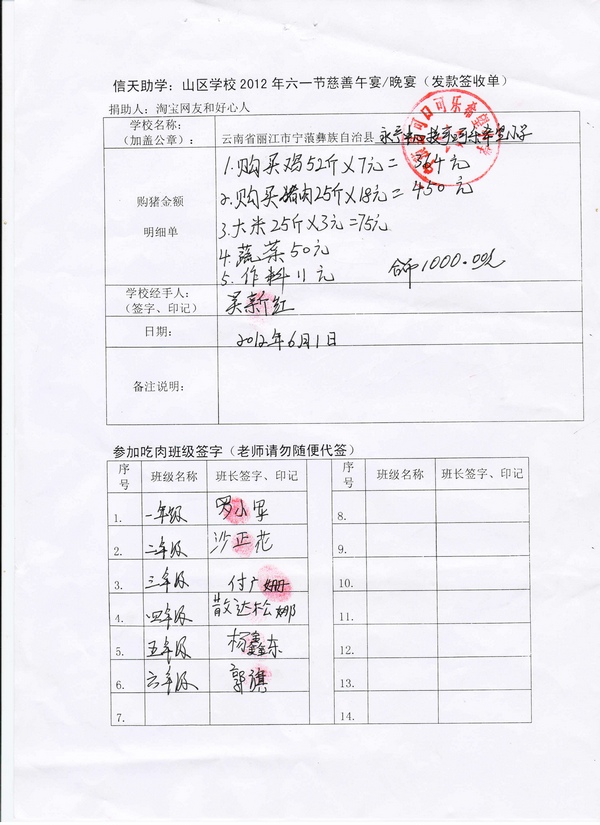 信天助学：山区学校2012年六一节慈善午宴/晚宴（发款签收单）
捐助人：淘宝网友和好心人
学校名称：
（加盖公章）：
云南省丽江市宁蒗彝族自治县
可口可乐希望
购猪金额
明细单
1.购买鸡52斤×7元=364元
2.购买猪肉25斤×18元=450元
3.大米25斤×3元=75元
4.蔬菜50元
5.作料11元
1000.00元
学校经手人：
（签字、印记）
吴新红
日期：
2012年6月1日
备注说明：
参加吃肉班级签字（老师请勿随便代签）
序号 班级名称 班长签字、印记 序号 班级名称 班长签字、印记
1. 一年级 罗小军 8.
2. 二年级 沙正花 9.
3. 三年级 付广姗 10.
4. 四年级 散达松娜 11.
5. 五年级 杨鑫东 12.
6. 六年级 郭旗 13.
7. 14.